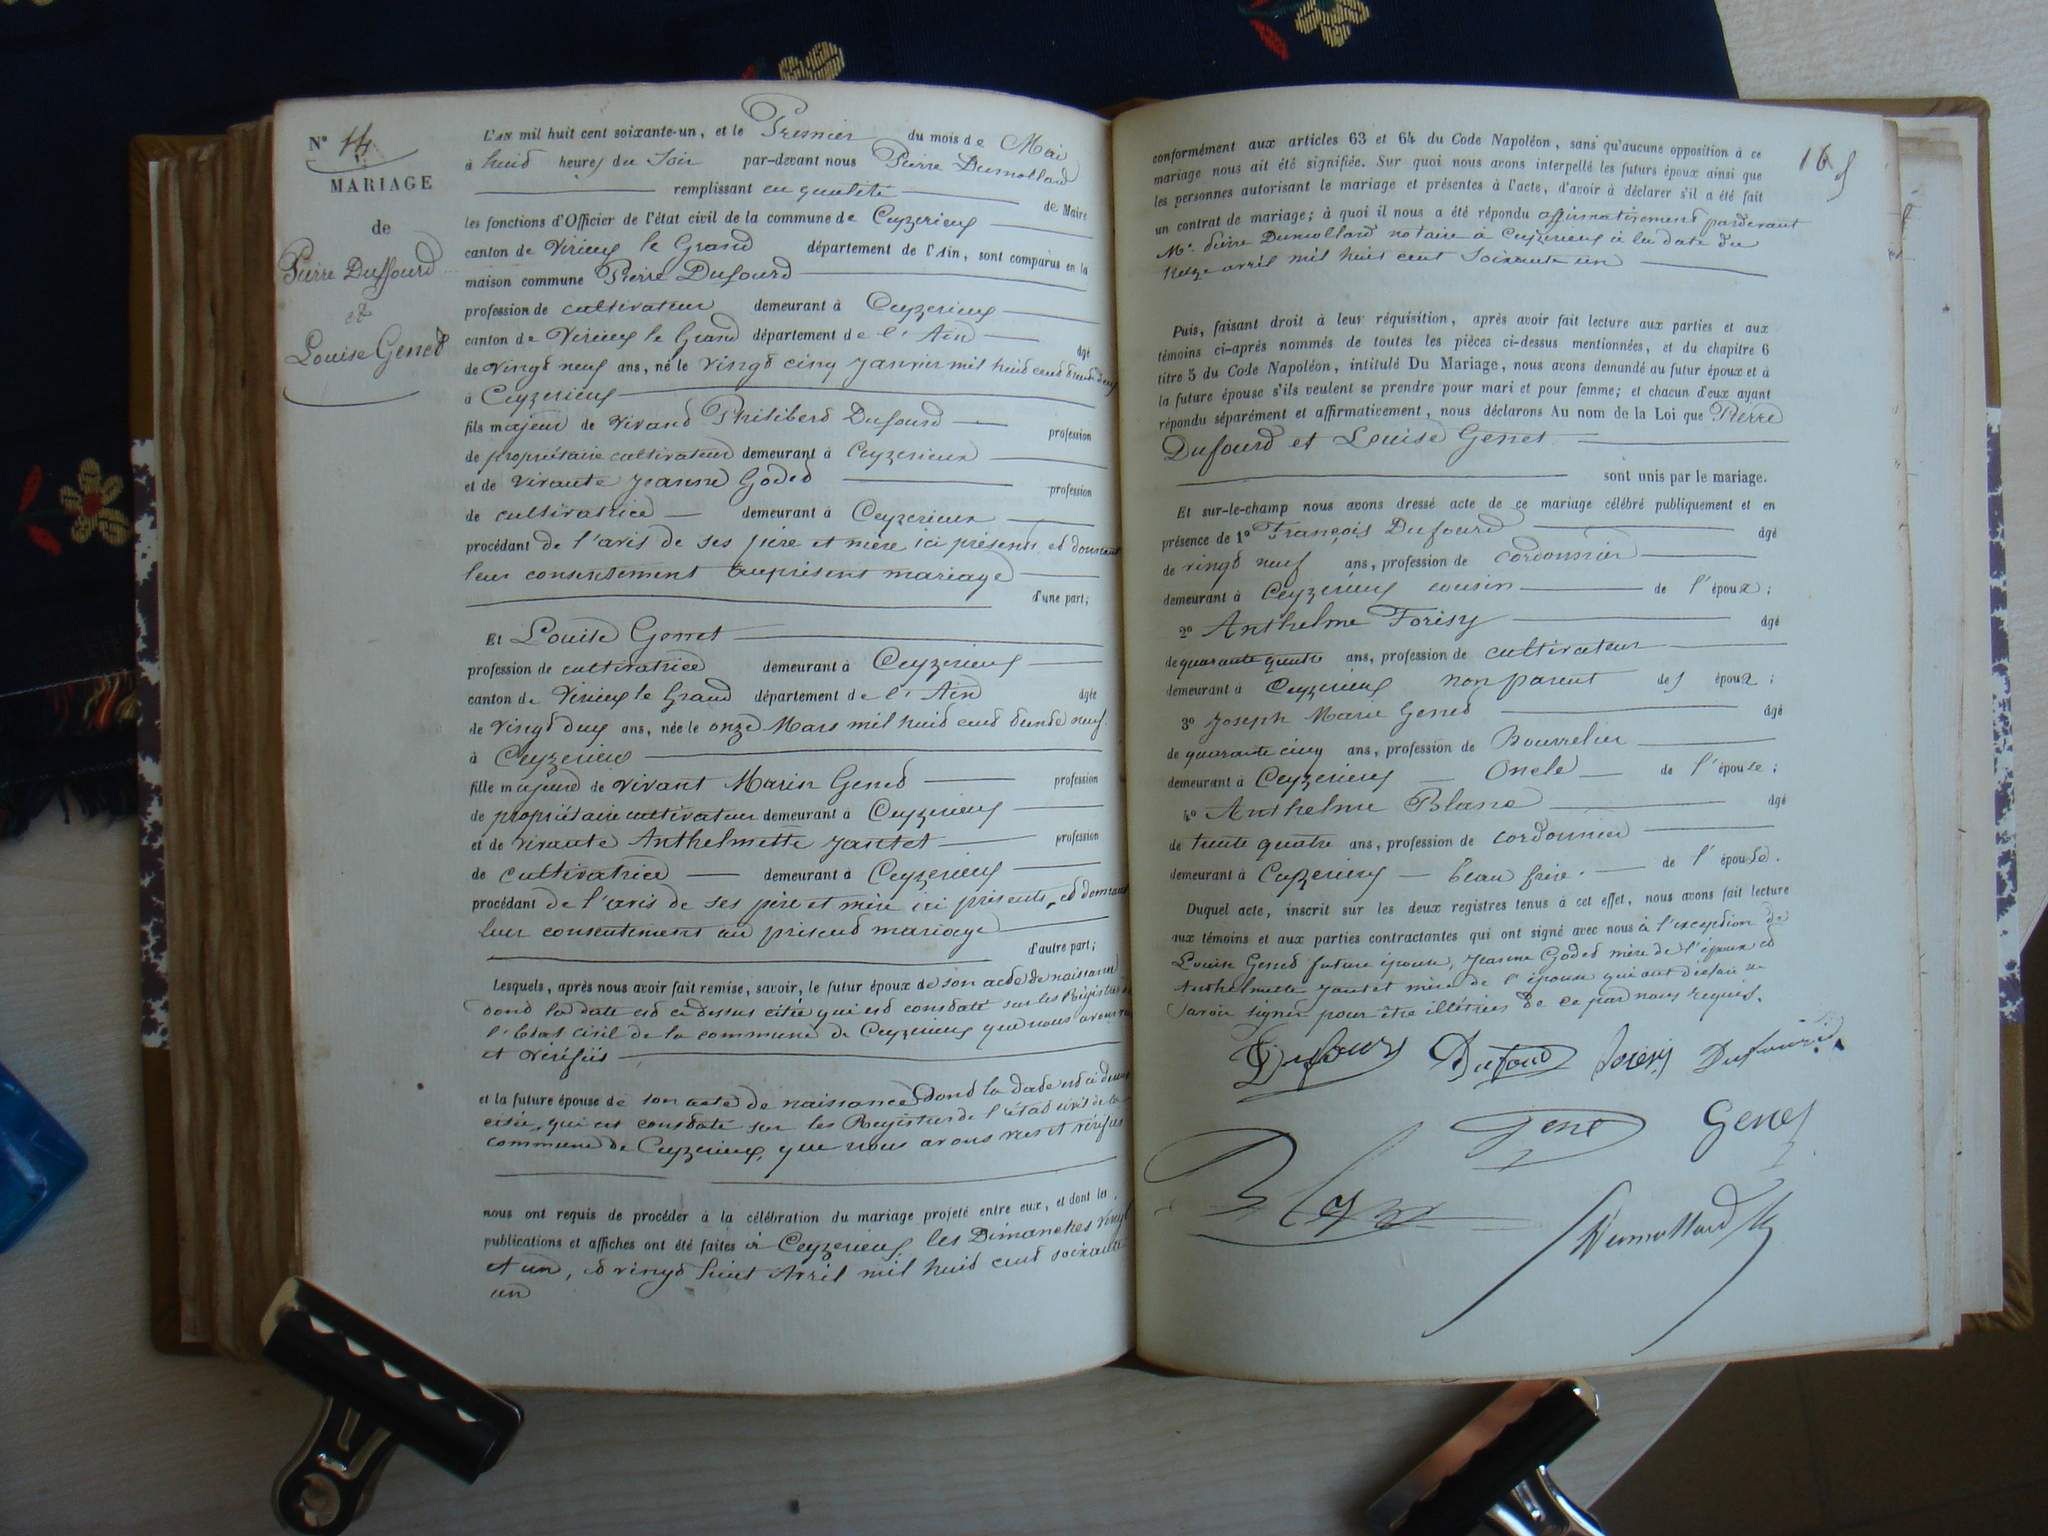 N° 14
MARIAGE
de
Pierre Duffourd
et
Louise Genet
L'AN mil huit cent soixante-un, et le Premier du mois de Mai
à huit heures du Soir par-devant nous Pierre Dumollard
remplissant en qualité de Maire
les fonctions d'Officier de l'état civil de la commune de Ceyzerieux
canton de Virieux le Grand département de l'Ain, sont comparus en la
maison commune Pierre Dufourd
profession de cultivateur demeurant à Ceyzerieux
canton de Virieux le Grand département de l'Ain âgé
de Vingt neuf ans, né le Vingt cinq Janvier mil huit cent trente deux
à Ceyzerieux
fils majeur de Vivant Philibert Dufourd profession
de propriétaire cultivateur demeurant à Ceyzerieux
et de vivante Jeanne Godet profession
de cultivatrice demeurant à Ceyzerieux
procédant de l'avis de ses père et mère ici présents et donnant
leur consentement au présent mariage
d'une part;
Et Louise Genet
profession de cultivatrice demeurant à Ceyzerieux
canton de Virieux le Grand département de l'Ain âgée
de Vingt deux ans, née le onze Mars mil huit cent trente neuf
à Ceyzerieux
fille majeure de vivant Marin Genet profession
de propriétaire cultivateur demeurant à Ceyzerieux
et de vivante Anthelmette Jantet profession
de cultivatrice demeurant à Ceyzerieux
procédant de l'avis de ses père et mère ici présents, et donnant
leur consentement au présent mariage
d'autre part;
Lesquels, après nous avoir fait remise, savoir, le futur époux de son acte de naissance
dont la date est ci dessus citée qui est constaté sur les Régistres de
l'Etat civil de la commune de Ceyzerieux que nous avons vus
et vérifiés
et la future épouse de son acte de naissance dont la date est ci dessus
citée, qui est constaté sur les Registres de l'état civil de la
commune de Ceyzerieux, que nous avons vus et vérifiés
nous ont requis de procéder à la célébration du mariage projeté entre eux, et dont les
publications et affiches ont été faites à Ceyzerieux, les Dimanches vingt
et un, et vingt huit Avril mil huit cent soixante
un
conformément aux articles 63 et 64 du Code Napoléon, sans qu'aucune opposition à ce
mariage nous ait été signifiée. Sur quoi nous avons interpellé les futurs époux ainsi que
les personnes autorisant le mariage et présentes à l'acte, d'avoir à déclarer s'il a été fait
un contrat de mariage; à quoi il nous a été répondu affirmativement pardevant
Me. Pierre Dumollard notaire à Ceyzerieux à la date du
treize avril mil huit cent soixante un
Puis, faisant droit à leur réquisition, après avoir fait lecture aux parties et aux
témoins ci-après nommés de toutes les pièces ci-dessus mentionnées, et du chapitre 6
titre 5 du Code Napoléon, intitulé Du Mariage, nous avons demandé au futur époux et à
la future épouse s'ils veulent se prendre pour mari et pour femme; et chacun d'eux ayant
répondu séparément et affirmativement, nous déclarons Au nom de la Loi que Pierre
Dufourd et Louise Genet
sont unis par le mariage.
Et sur-le-champ nous avons dressé acte de ce mariage célébré publiquement et en
présence de 1° François Dufourd âgé
de vingt neuf ans, profession de cordonnier
demeurant à Ceyzerieux cousin de l'époux;
2° Anthelme Forisy âgé
de quarante quatre ans, profession de cultivateur
demeurant à Ceyzerieux non parent des époux;
3° Joseph Marie Genet âgé
de quarante cinq ans, profession de Bourrelier
demeurant à Ceyzerieux Oncle de l'épouse;
4° Anthelme Blanc âgé
de trente quatre ans, profession de cordonnier
demeurant à Ceyzerieux beau frère. de l'épouse.
Duquel acte, inscrit sur les deux registres tenus à cet effet, nous avons fait lecture
aux témoins et aux parties contractantes qui ont signé avec nous à l'exception de
Louise Genet future épouse, Jeanne Godet mère de l'époux et
Anthelmette Jantet mère de l'épouse qui ont déclaré ne
savoir signer pour être illétrées de ce par nous requis.
Dufourd Dufourd Forisy Dufourd
Genet Genet
Blanc
Dumollard